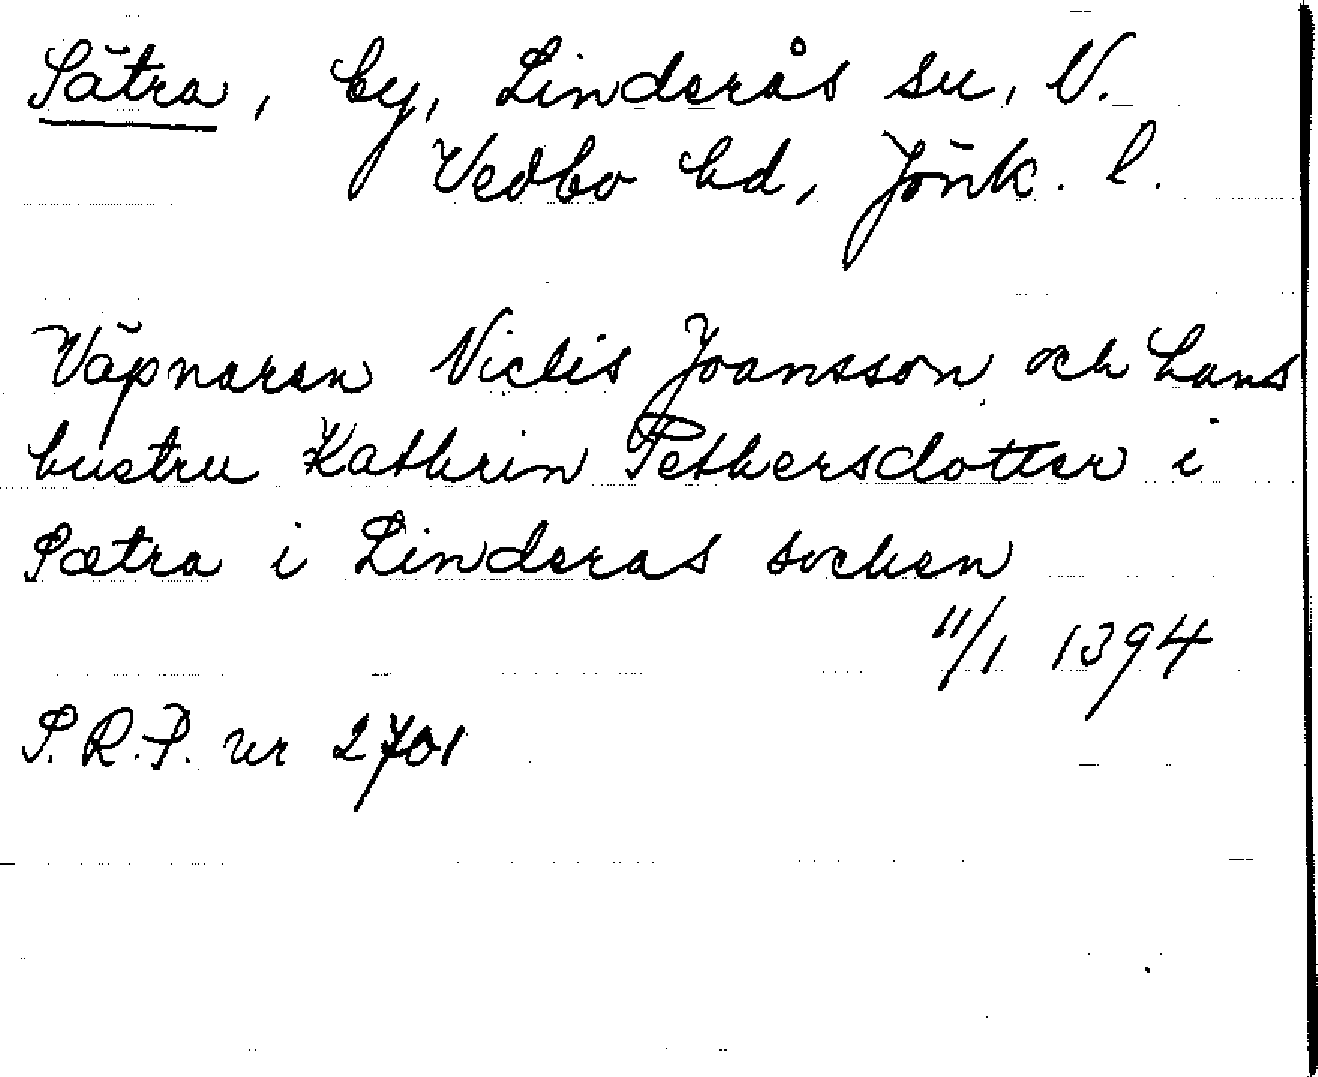 Sätra, by, Linderås sn, N.
Vedbo hd, Jönk. l.
Väpnaren Niclis Joansson och hans
hustru Kathrin Pethersdotter i
Sætra i Linderas socken
11/1 1394
S.R.P. nr 2701